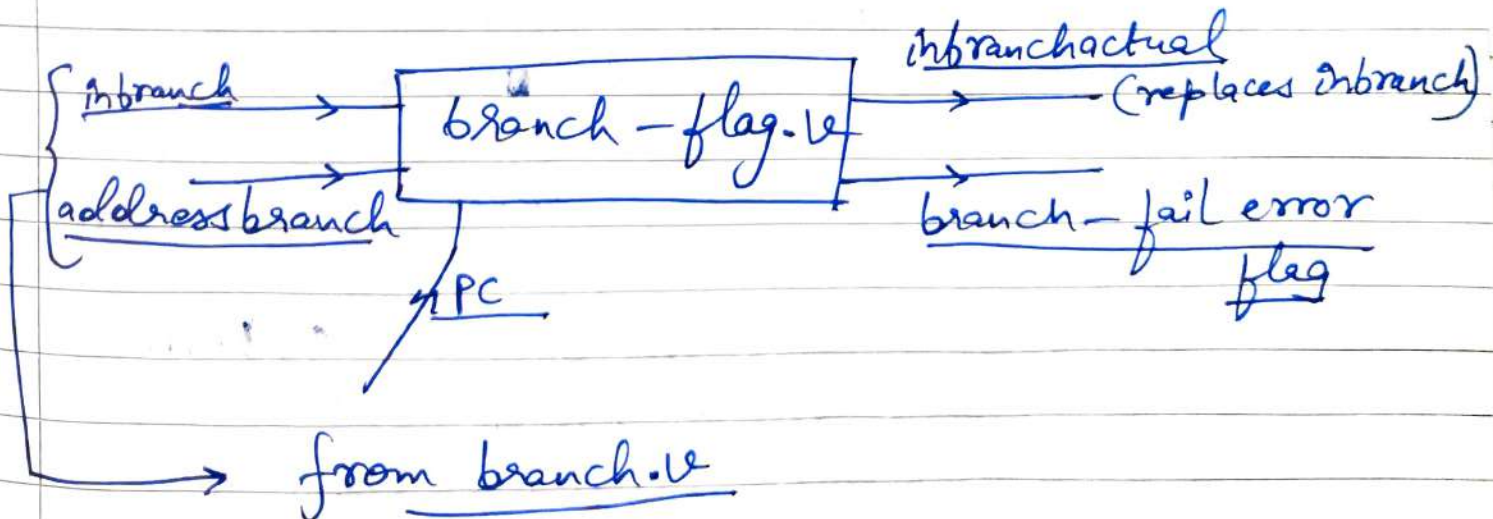 inbranch
addressbranch
branch-flag.v
PC
inbranchactual
(replaces inbranch)
branch-fail error
flag
from branch.v